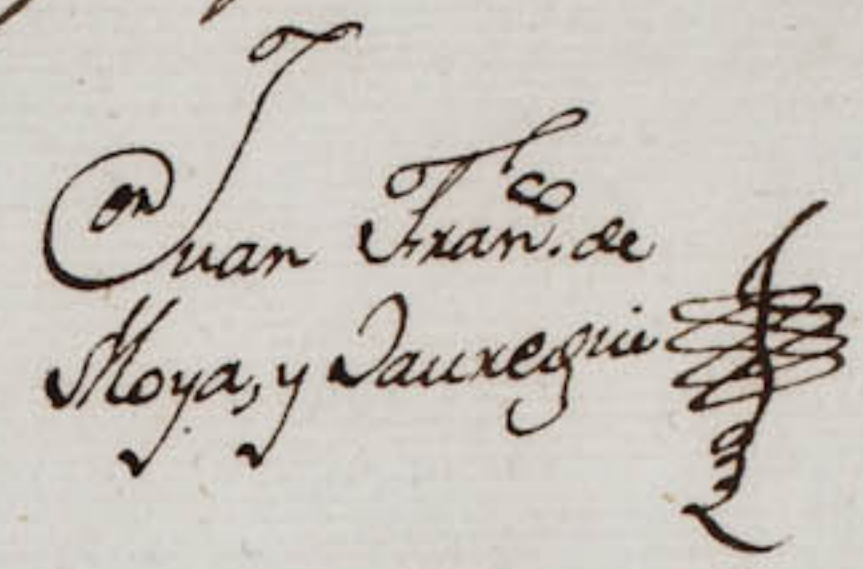 Dn Juan Franco. de
Moya, y Jauregui